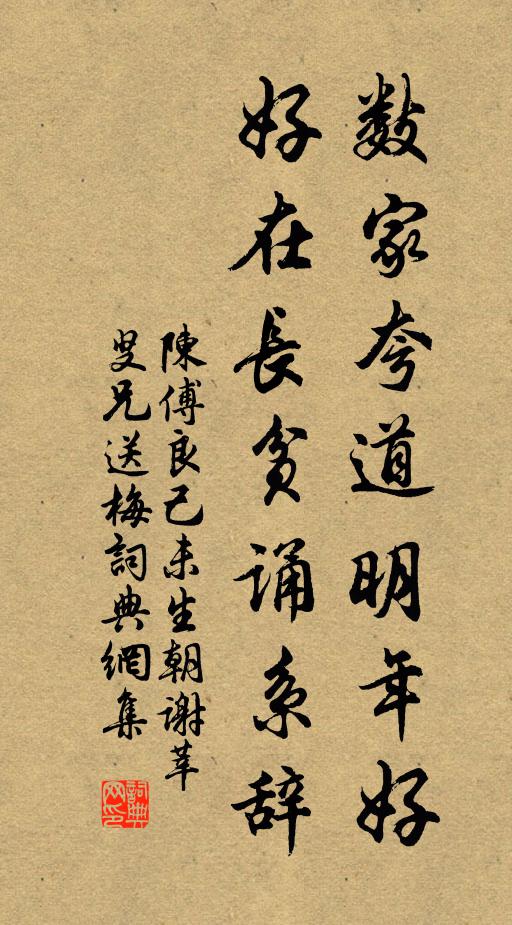 数家夸道明年好
好在長貧诵系辞
陳傅良己未生朝謝莘
叟兄送梅詞典網集
詞典网印